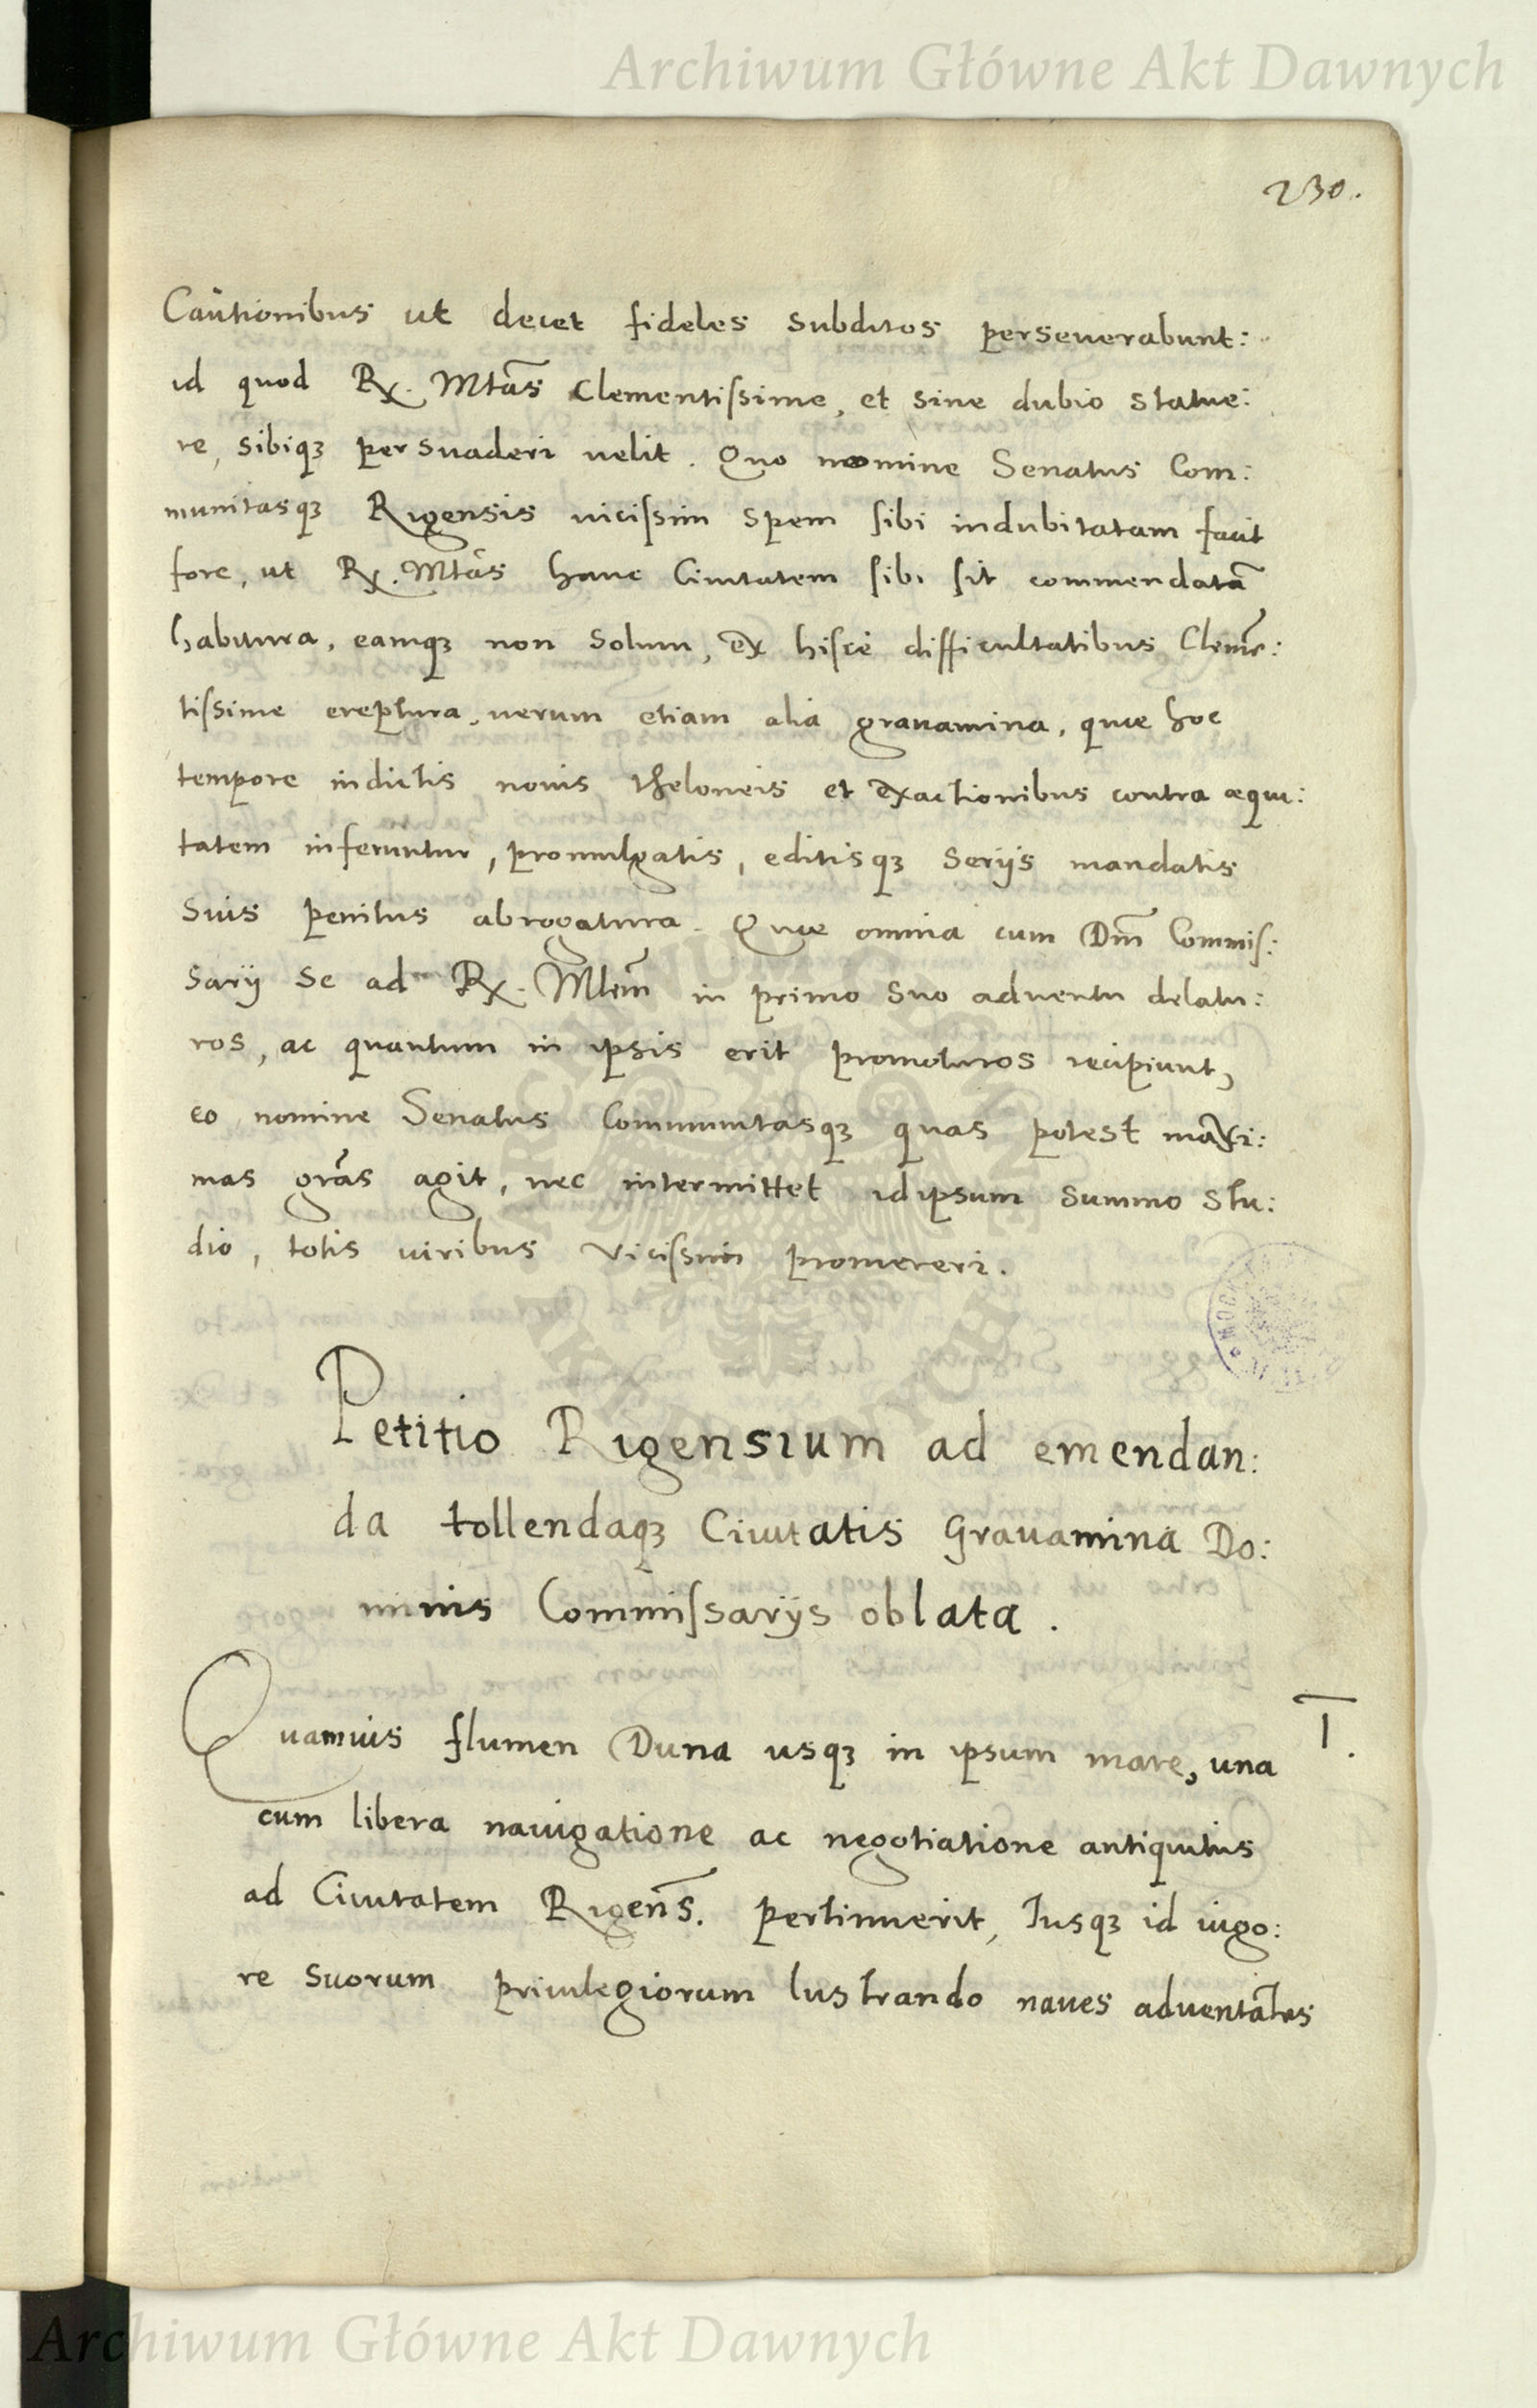 Archiwum Główne Akt Dawnych
230.
Cautionibus ut decet fideles subditos perseuerabunt:
id quod Rx. Mtãs Clementiſsime, et sine dubio statue:
re, sibiqꝫ persuaderi uelit. Quo nomine Senatus Com:
munitasqꝫ Rigensis uiciſsim spem ſibi indubitatam facit
fore, ut Rx. Mtãs hanc Ciuitatem ſibi ſit commendatã
habitura, eamqꝫ non solum, ex hiſce difficultatibus Clemẽ:
tiſsime ereptura, uerum etiam alia grauamina, quae hoc
tempore indictis nouis theloneis et exactionibus contra aequi:
tatem inferuntur, promulgatis, editisqꝫ serijs mandatis
suis penitus abrogatura. Quae omnia cum Dm̃ Commiſ:
sarij se ad Rx. Mtem̃ in primo suo aduentu delatu:
ros, ac quantum in ipsis erit promoturos recipiunt,
eo nomine Senatus Communitasqꝫ quas potest maxi:
mas grãs agit, nec intermittet idipsum summo stu:
dio, totis uiribus viciſsim promereri.
Petitio Rigensium ad emendan:
da tollendaqꝫ Ciuitatis Grauamina Do:
minis Commiſsarijs oblata.
Quamuis flumen Duna usqꝫ in ipsum mare, una
I.
cum libera nauigatione ac negotiatione antiquitus
ad Ciuitatem Rigens̃. pertinuerit, Iusqꝫ id uigo:
re suorum priuilegiorum lustrando naues aduentãtes
Archiwum Główne Akt Dawnych